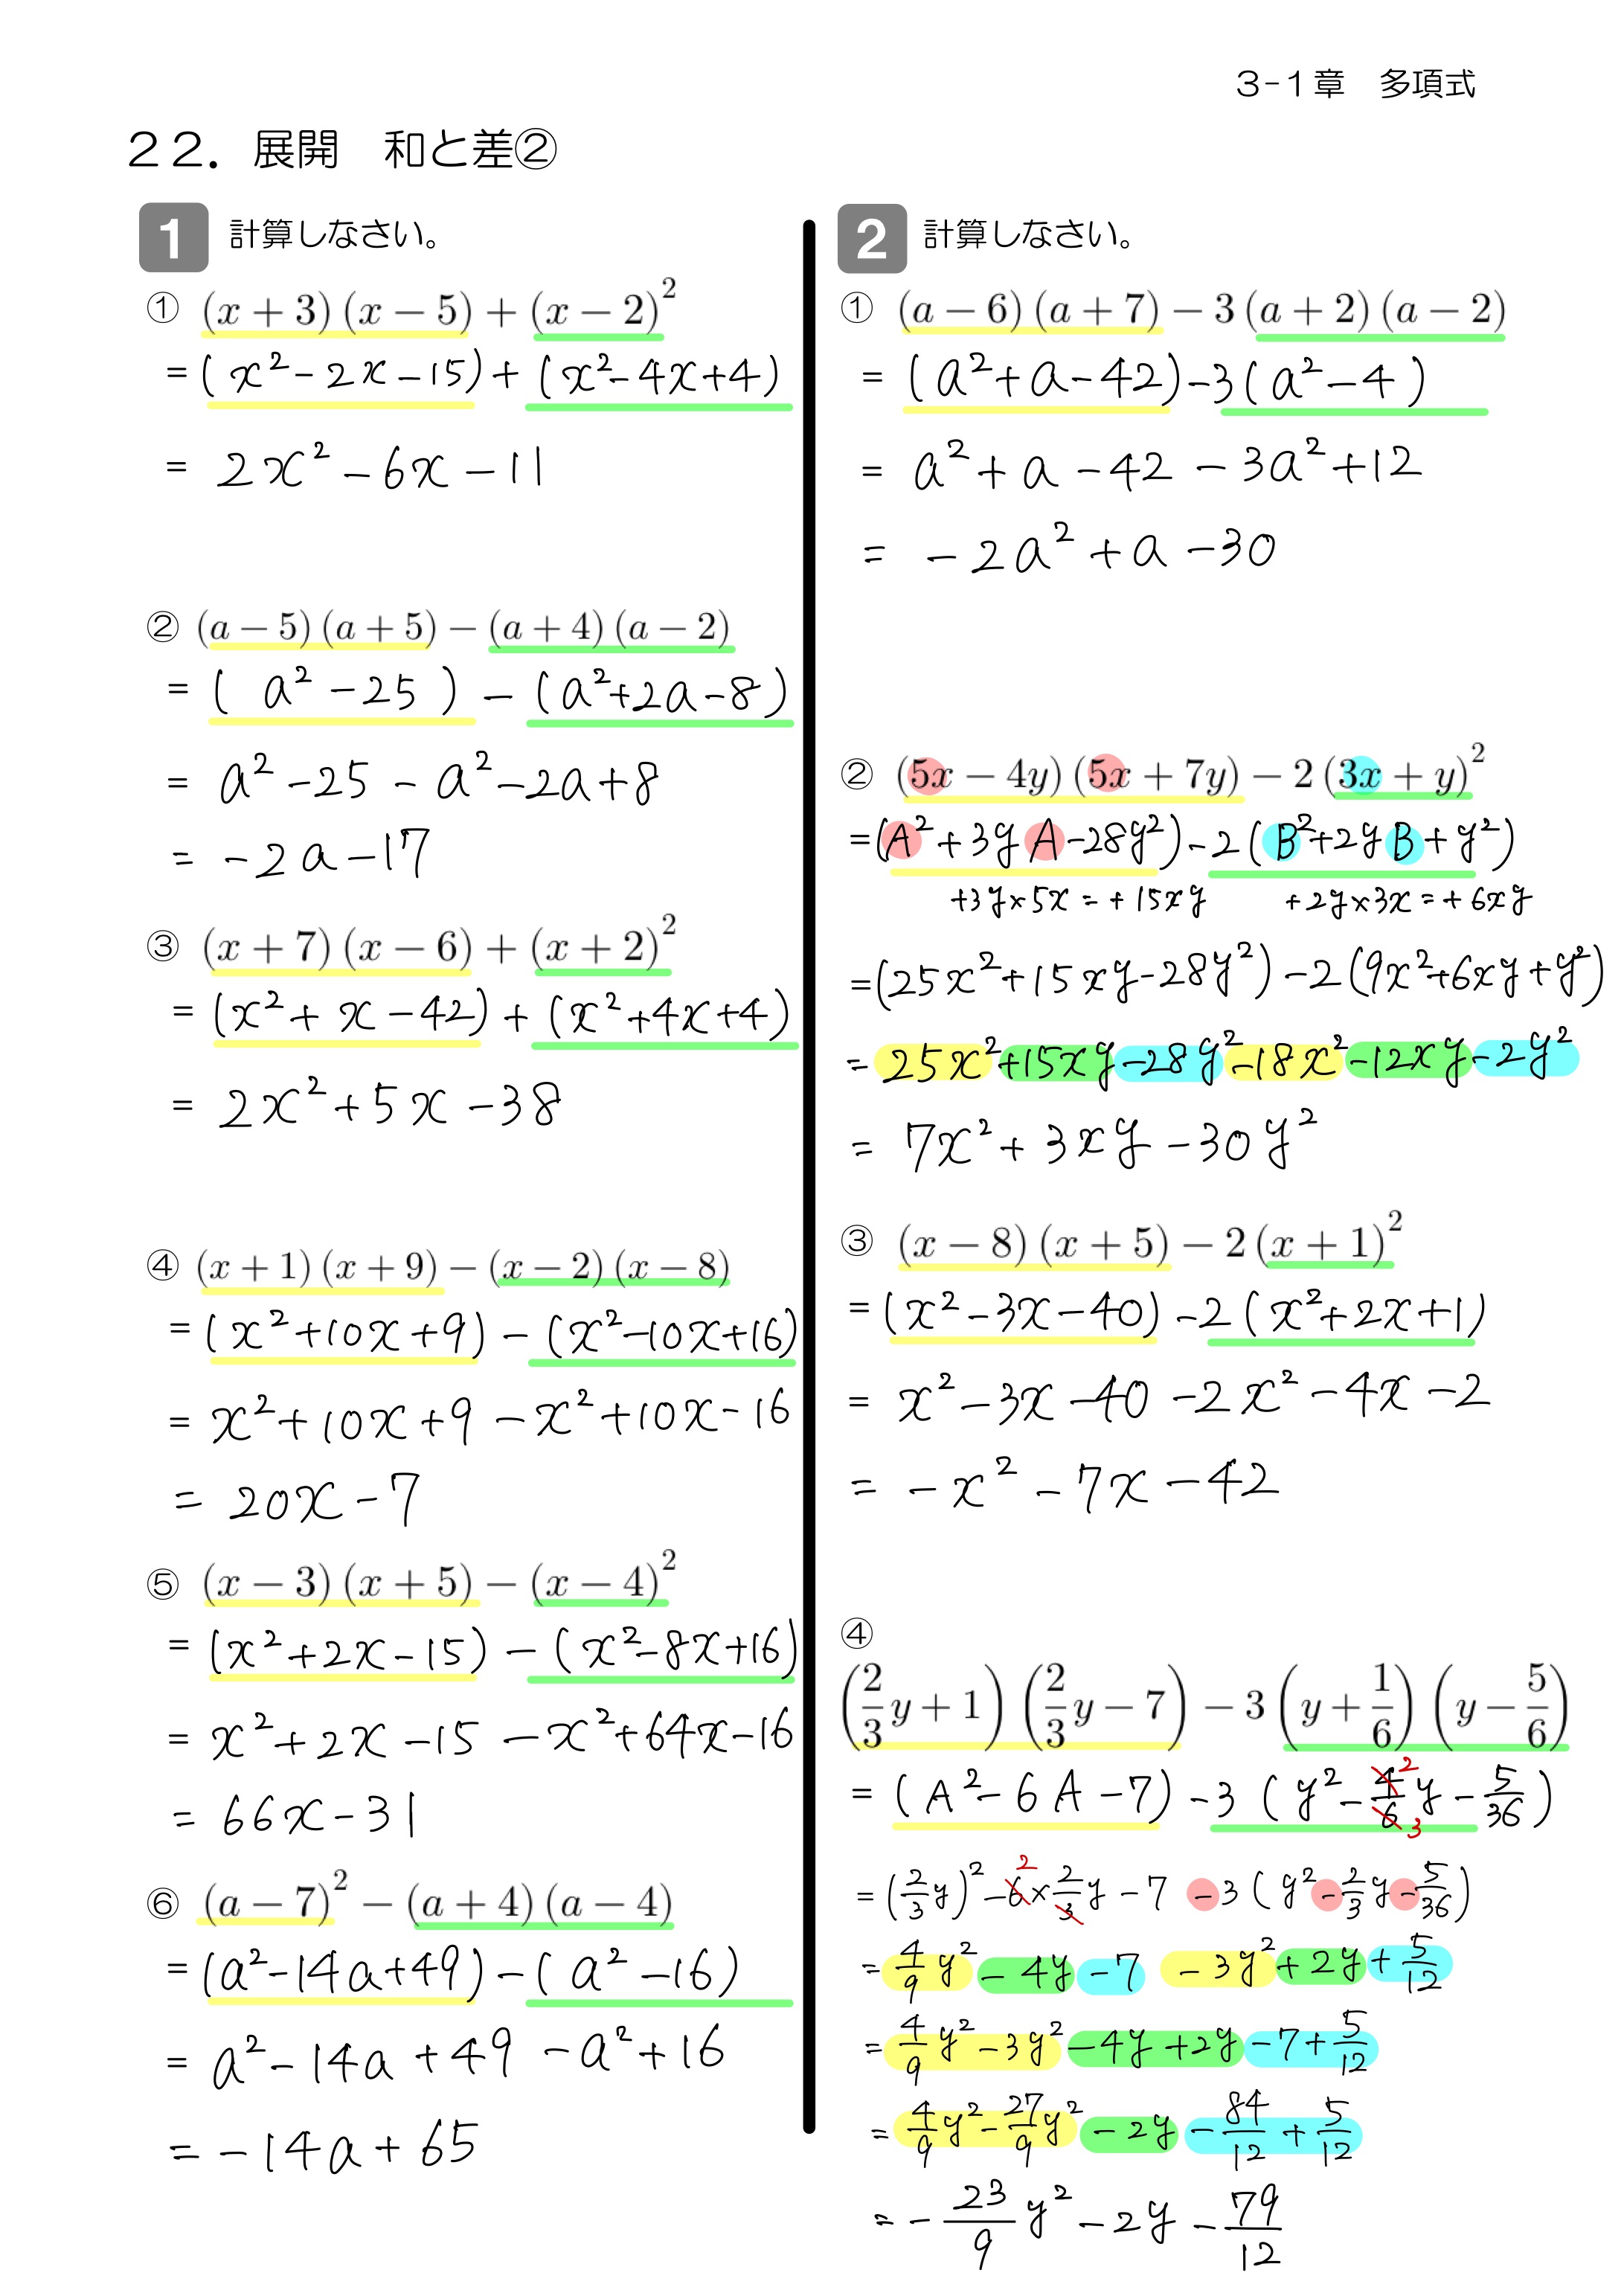 3-1章　多項式
２２．展開　和と差②
1 計算しなさい。
① (x + 3)(x − 5) + (x − 2)²
= (x² − 2x − 15) + (x² − 4x + 4)
= 2x² − 6x − 11
② (a − 5)(a + 5) − (a + 4)(a − 2)
= ( a² − 25 ) − (a² + 2a − 8)
= a² − 25 − a² − 2a + 8
= −2a − 17
③ (x + 7)(x − 6) + (x + 2)²
= (x² + x − 42) + (x² + 4x + 4)
= 2x² + 5x − 38
④ (x + 1)(x + 9) − (x − 2)(x − 8)
= (x² + 10x + 9) − (x² − 10x + 16)
= x² + 10x + 9 − x² + 10x − 16
= 20x − 7
⑤ (x − 3)(x + 5) − (x − 4)²
= (x² + 2x − 15) − (x² − 8x + 16)
= x² + 2x − 15 − x² + 64x − 16
= 66x − 31
⑥ (a − 7)² − (a + 4)(a − 4)
= (a² − 14a + 49) − (a² − 16)
= a² − 14a + 49 − a² + 16
= −14a + 65
2 計算しなさい。
① (a − 6)(a + 7) − 3(a + 2)(a − 2)
= (a² + a − 42) − 3(a² − 4)
= a² + a − 42 − 3a² + 12
= −2a² + a − 30
② (5x − 4y)(5x + 7y) − 2(3x + y)²
= (A² + 3yA − 28y²) − 2(B² + 2yB + y²)
+3y×5x = +15xy +2y×3x = +6xy
= (25x² + 15xy − 28y²) − 2(9x² + 6xy + y²)
= 25x² + 15xy − 28y² − 18x² − 12xy − 2y²
= 7x² + 3xy − 30y²
③ (x − 8)(x + 5) − 2(x + 1)²
= (x² − 3x − 40) − 2(x² + 2x + 1)
= x² − 3x − 40 − 2x² − 4x − 2
= −x² − 7x − 42
④
(2/3 y + 1)(2/3 y − 7) − 3(y + 1/6)(y − 5/6)
= (A² − 6A − 7) − 3(y² − 4/6 2/3 y − 5/36)
= (2/3 y)² − 6 2 × 2/3 y − 7 − 3(y² − 2/3 y − 5/36)
= 4/9 y² − 4y − 7 − 3y² + 2y + 5/12
= 4/9 y² − 3y² − 4y + 2y − 7 + 5/12
= 4/9 y² − 27/9 y² − 2y − 84/12 + 5/12
= − 23/9 y² − 2y − 79/12